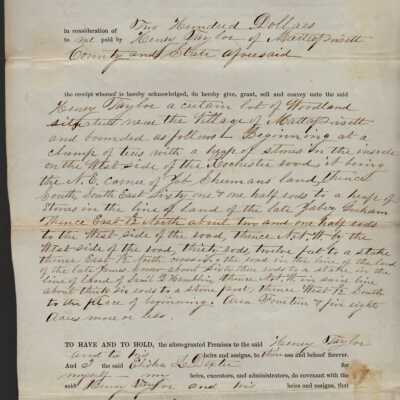 in consideration of Two Hundred Dollars
to me paid by Henry Taylor of Mattapoisett
County and State aforesaid
the receipt whereof is hereby acknowledged, do hereby give, grant, sell and convey unto the said
Henry Taylor a certain lot of Woodland
near the Village of Mattapoisett
and bounded as follows Beginning at a
clump of trees with a heap of stones in the
on the West side of the Rochester road it being
the N.E. corner of land, thence
South, South East Sixty one & one half rods to a heap of
Stones in the line of land of the late
Thence East North about two and one half rods
to the West side of the road, thence N. W. by the
West side of the road, thirty rods, twelve feet to a stake
thence East crossing the road in the line of the land
of the late James about rods to a stake in the
line of land of thence in said line
about thirty six rods to a stone post, thence West South
to the place of beginning. Area Fourteen & five eight
Acres more or less
TO HAVE AND TO HOLD, the aforegranted Premises to the said Henry Taylor
and to his heirs and assigns, to use and behoof forever.
And I the said Dexter for
myself my heirs, executors, and administrators, do covenant with the
said Henry Taylor and his heirs and assigns, that